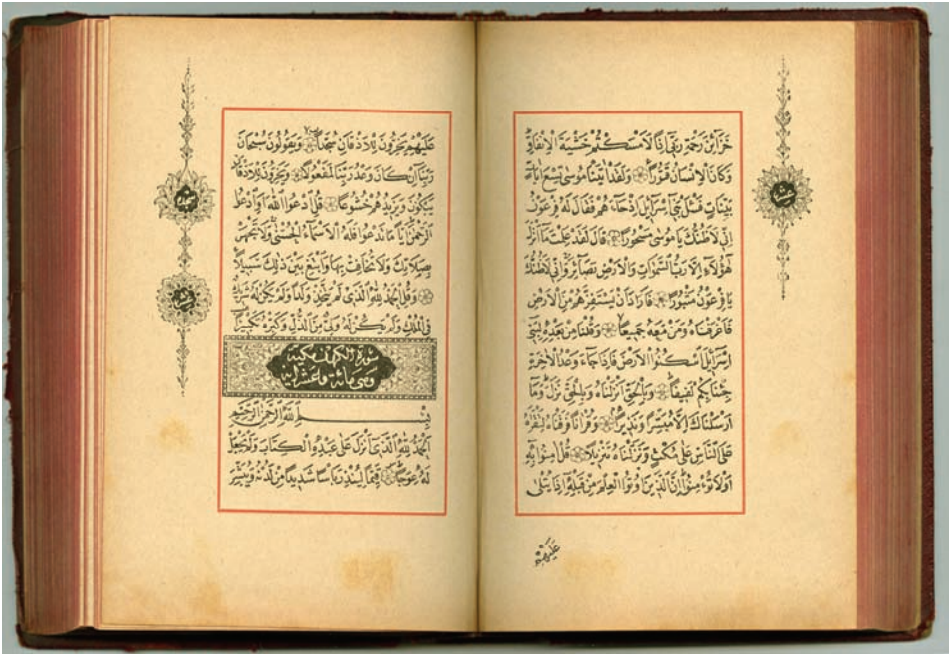 خَزَآئِنَ رَحْمَةِ رَبِّىٓ اِذًا لَاَمْسَكْتُمْ خَشْيَةَ الْاِنْفَاقِ
وَكَانَ الْاِنْسَانُ قَتُورًا ۞ وَلَقَدْ اٰتَيْنَا مُوسٰى تِسْعَ اٰيَاتٍ
بَيِّنَاتٍ فَسْئَلْ بَنِىٓ اِسْرَآئِلَ اِذْ جَآءَهُمْ فَقَالَ لَهُ فِرْعَوْنُ
اِنِّى لَاَظُنُّكَ يَا مُوسٰى مَسْحُورًا ۞ قَالَ لَقَدْ عَلِمْتَ مَآ اَنْزَلَ
هٰٓؤُلَآءِ اِلَّا رَبُّ السَّمٰوَاتِ وَالْاَرْضِ بَصَآئِرَ وَاِنِّى لَاَظُنُّكَ
يَا فِرْعَوْنُ مَثْبُورًا ۞ فَاَرَادَ اَنْ يَسْتَفِزَّهُمْ مِنَ الْاَرْضِ
فَاَغْرَقْنَاهُ وَمَنْ مَعَهُ جَمِيعًا ۞ وَقُلْنَا مِنْ بَعْدِهِ لِبَنِىٓ
اِسْرَآئِلَ اسْكُنُوا الْاَرْضَ فَاِذَا جَآءَ وَعْدُ الْاٰخِرَةِ
جِئْنَا بِكُمْ لَفِيفًا ۞ وَبِالْحَقِّ اَنْزَلْنَاهُ وَبِالْحَقِّ نَزَلَ وَمَآ
اَرْسَلْنَاكَ اِلَّا مُبَشِّرًا وَنَذِيرًا ۞ وَقُرْاٰنًا فَرَقْنَاهُ لِتَقْرَاَهُ
عَلَى النَّاسِ عَلٰى مُكْثٍ وَنَزَّلْنَاهُ تَنْزِيلًا ۞ قُلْ اٰمِنُوا بِهِٓ
اَوْ لَا تُؤْمِنُوا اِنَّ الَّذِينَ اُوتُوا الْعِلْمَ مِنْ قَبْلِهِٓ اِذَا يُتْلٰى
عَلَيْهِمْ
عشر
عَلَيْهِمْ يَخِرُّونَ لِلْاَذْقَانِ سُجَّدًا ۞ وَيَقُولُونَ سُبْحَانَ
رَبِّنَآ اِنْ كَانَ وَعْدُ رَبِّنَا لَمَفْعُولًا ۞ وَيَخِرُّونَ لِلْاَذْقَانِ
يَبْكُونَ وَيَزِيدُهُمْ خُشُوعًا ۞ قُلِ ادْعُوا اللّٰهَ اَوِ ادْعُوا
الرَّحْمٰنَ اَيًّا مَا تَدْعُوا فَلَهُ الْاَسْمَآءُ الْحُسْنٰى وَلَا تَجْهَرْ
بِصَلَاتِكَ وَلَا تُخَافِتْ بِهَا وَابْتَغِ بَيْنَ ذٰلِكَ سَبِيلًا
۞ وَقُلِ الْحَمْدُ لِلّٰهِ الَّذِى لَمْ يَتَّخِذْ وَلَدًا وَلَمْ يَكُنْ لَهُ شَرِيكٌ
فِى الْمُلْكِ وَلَمْ يَكُنْ لَهُ وَلِىٌّ مِنَ الذُّلِّ وَكَبِّرْهُ تَكْبِيرًا
سورة الكهف مكية
وهى مائة وعشر اية
بِسْمِ اللّٰهِ الرَّحْمٰنِ الرَّحِيمِ
اَلْحَمْدُ لِلّٰهِ الَّذِىٓ اَنْزَلَ عَلٰى عَبْدِهِ الْكِتَابَ وَلَمْ يَجْعَلْ
لَهُ عِوَجًا ۞ قَيِّمًا لِيُنْذِرَ بَاْسًا شَدِيدًا مِنْ لَدُنْهُ وَيُبَشِّرَ
سجده
عشر